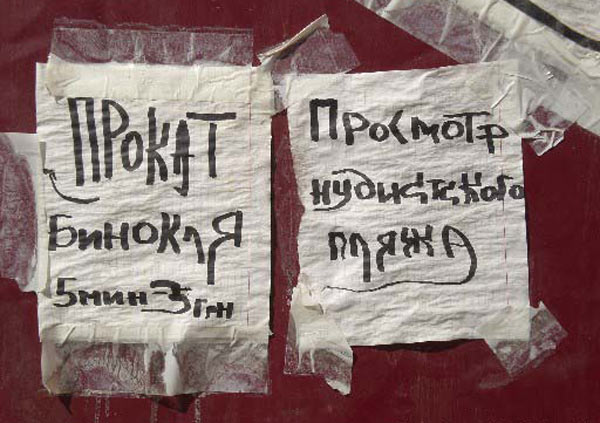 ПРОКАТ
БИНОКЛЯ
5мин-3грн
ПРОСМОТР
нудистского
пляжА